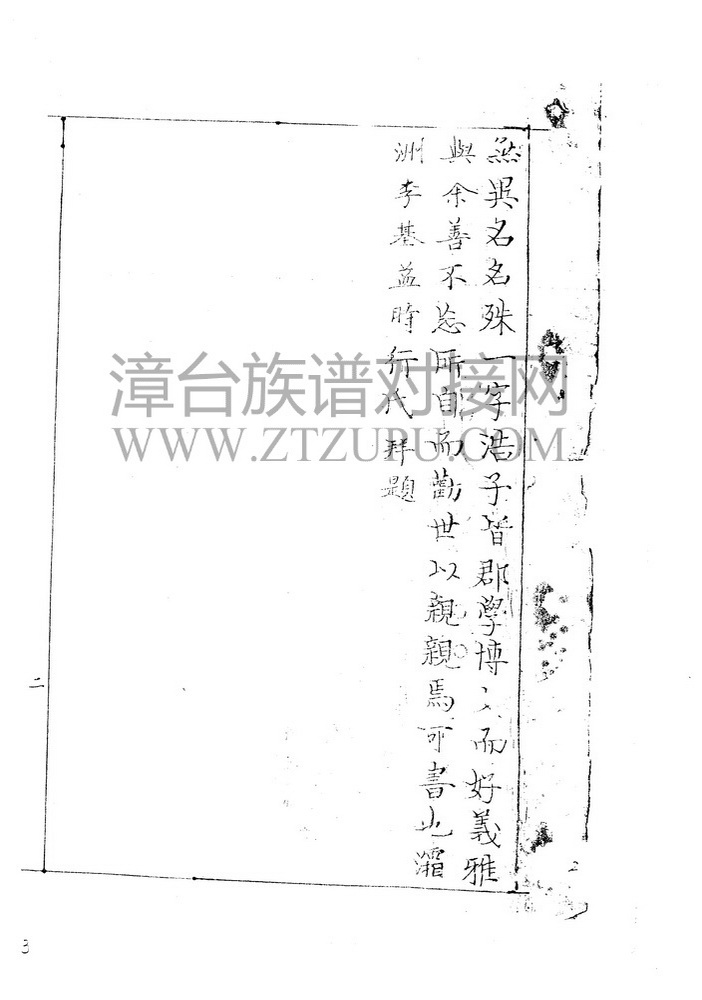 無異名名殊一字浩子皆郡學博而好義雅
與余善不忘所自而勸世以親親焉可書也霜
洲李基益時行代拜題
漳台族谱对接网
WWW.ZTZUPU.COM
二
2
3